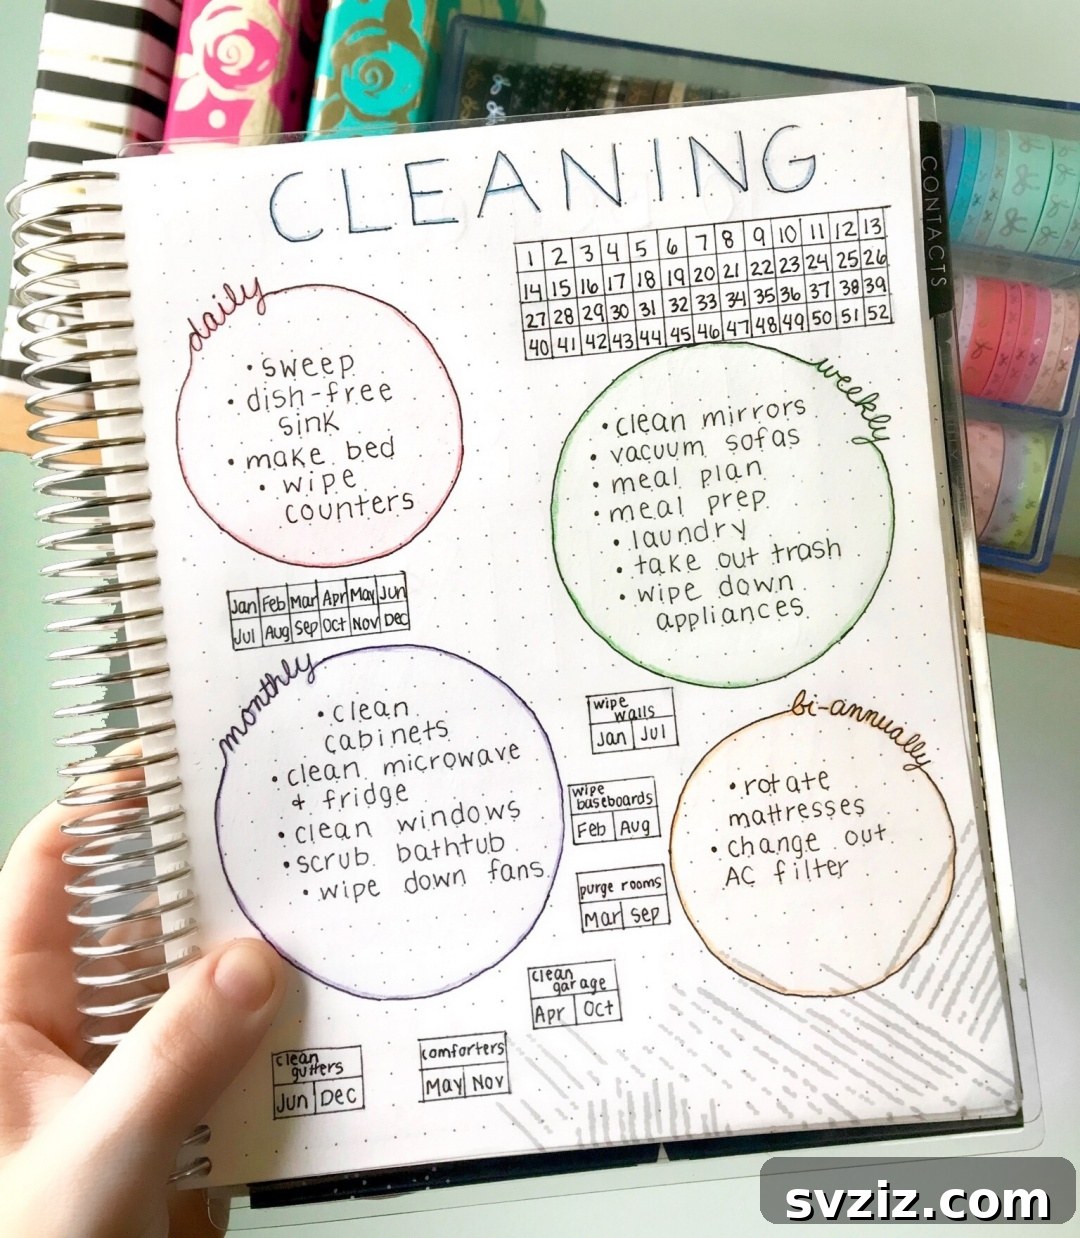 CLEANING
CONTACTS
1 2 3 4 5 6 7 8 9 10 11 12 13
14 15 16 17 18 19 20 21 22 23 24 25 26
27 28 29 30 31 32 33 34 35 36 37 38 39
40 41 42 43 44 45 46 47 48 49 50 51 52
daily
• sweep
• dish-free
sink
• make bed
• wipe
counters
weekly
• clean mirrors
• vacuum sofas
• meal plan
• meal prep
• laundry
• take out trash
• wipe down
appliances
Jan Feb Mar Apr May Jun
Jul Aug Sep Oct Nov Dec
monthly
• clean
cabinets
• clean microwave
+ fridge
• clean windows
• scrub bathtub
• wipe down fans
wipe
walls
Jan Jul
wipe
baseboards
Feb Aug
purge rooms
Mar Sep
clean
garage
Apr Oct
bi-annually
• rotate
mattresses
• change out
AC filter
clean
gutters
Jun Dec
comforters
May Nov
svziz.com